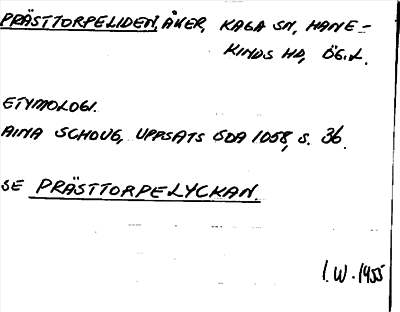 PRÄSTTORPELIDEN, ÅKER, KAGA SN, HANE-
KINDS HD, ÖG.L.
ETYMOLOGI.
AINA SCHOUG, UPPSATS ODA 1058, S. 36.
SE PRÄSTTORPELYCKAN.
I.W. 1955